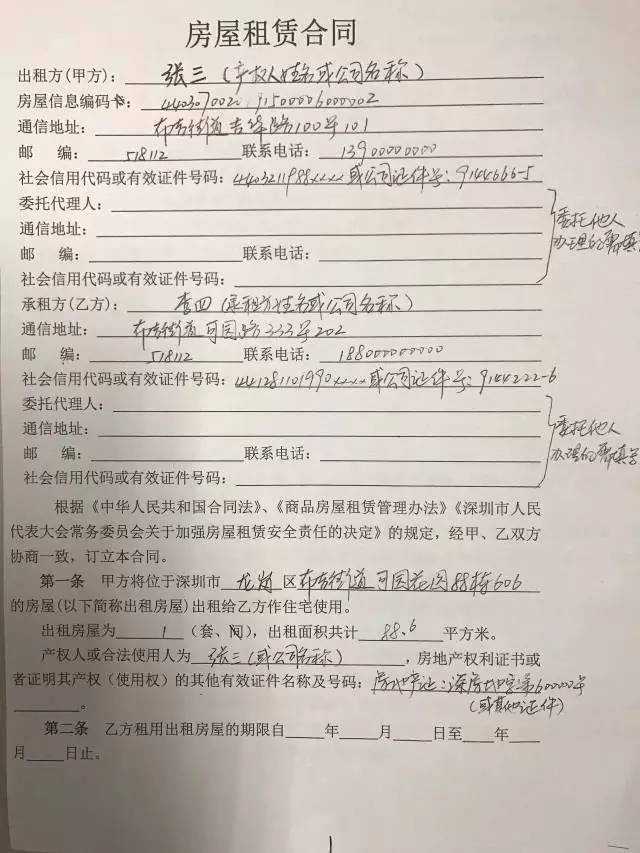 房屋租赁合同
出租方(甲方)：张三(产权人姓名或公司名称)
房屋信息编码卡：4403070020915000060000002
通信地址：布吉街道吉华路100号101
邮 编：518112 联系电话：13900000000
社会信用代码或有效证件号码：4403211988xxxx或公司证件号：9144666-5
委托代理人：
通信地址：
邮 编： 联系电话：
社会信用代码或有效证件号码：
委托他人
办理的需填写
承租方(乙方)：李四(承租方姓名或公司名称)
通信地址：布吉街道可园路333号202
邮 编：518112 联系电话：18800000000
社会信用代码或有效证件号码：441281101990xxxx或公司证件号：9144222-6
委托代理人：
通信地址：
邮 编： 联系电话：
社会信用代码或有效证件号码：
委托他人
办理的需填写
根据《中华人民共和国合同法》、《商品房屋租赁管理办法》《深圳市人民
代表大会常务委员会关于加强房屋租赁安全责任的决定》的规定，经甲、乙双方
协商一致，订立本合同。
第一条 甲方将位于深圳市龙岗区布吉街道可园花园88栋606
的房屋(以下简称出租房屋)出租给乙方作住宅使用。
出租房屋为1(套、间)，出租面积共计88.6平方米。
产权人或合法使用人为张三(或公司名称)，房地产权利证书或
者证明其产权（使用权）的其他有效证件名称及号码：房地产证：深房地字第600000号
(或其他证件)
。
第二条 乙方租用出租房屋的期限自 年 月 日至 年
月 日止。
1